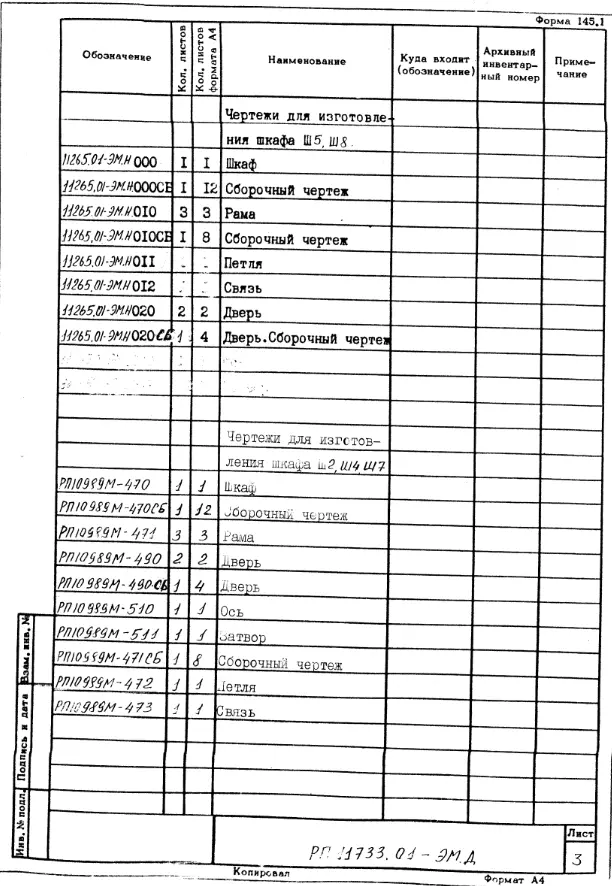 Форма 145.1
Обозначение Кол. листов Кол. листов формата А4 Наименование Куда входит (обозначение) Архивный инвентарный номер Примечание
Чертежи для изготовле-
ния шкафа Ш5, Ш8.
11265.01-ЭМ.И000 I I Шкаф
11265.01-ЭМ.И000СБ I I2 Сборочный чертеж
11265.01-ЭМ.И0I0 3 3 Рама
11265.01-ЭМ.И0I0СБ I 8 Сборочный чертеж
11265.01-ЭМ.И0II Петля
11265.01-ЭМ.И0I2 Связь
11265.01-ЭМ.И020 2 2 Дверь
11265.01-ЭМ.И020СБ 1 4 Дверь.Сборочный чертеж
Чертежи для изготов-
ления шкафа Ш2, Ш4, Ш7
РП10989М-470 1 1 Шкаф
РП10989М-470СБ 1 12 Сборочный чертеж
РП10989М-471 3 3 Рама
РП10989М-490 2 2 Дверь
РП10989М-490СБ 1 4 Дверь
РП10989М-510 1 1 Ось
РП10989М-511 1 1 Затвор
РП10989М-471СБ 1 8 Сборочный чертеж
РП10989М-472 1 1 Петля
РП10989М-473 1 1 Связь
Взам. инв. №
Подпись и дата
Инв. № подл.
РП 11733.01-ЭМ.Д
Лист
3
Копировал Формат А4